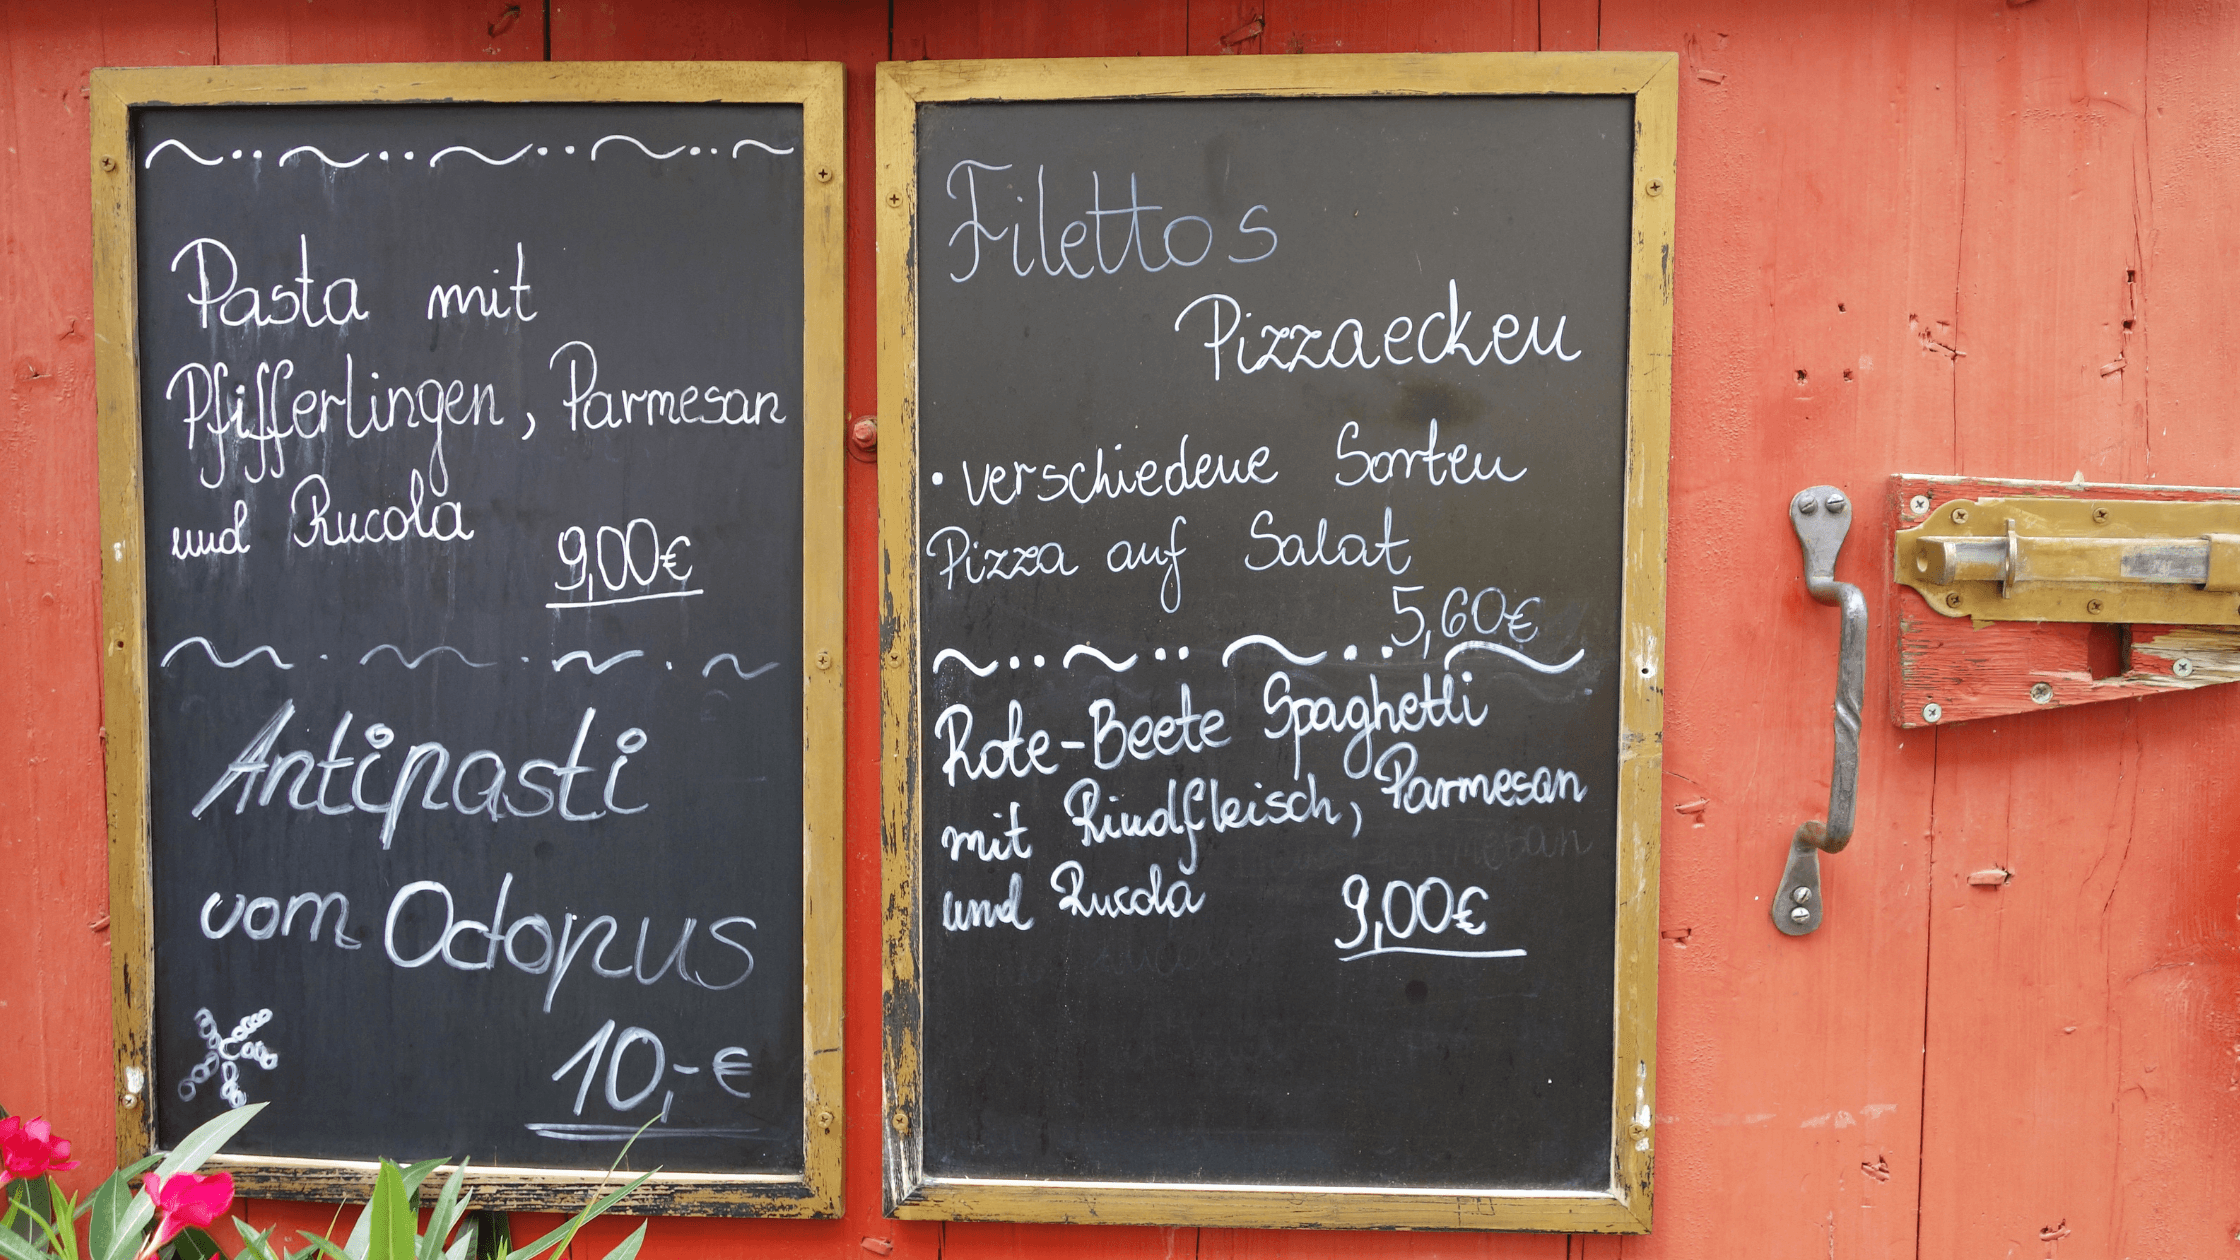 Pasta mit
Pfifferlingen, Parmesan
und Rucola
9,00€
Antipasti
vom Octopus
10,-€
Filettos
Pizzaecken
• verschiedene Sorten
Pizza auf Salat
5,60€
Rote-Beete Spaghetti
mit Rindfleisch, Parmesan
und Rucola
9,00€